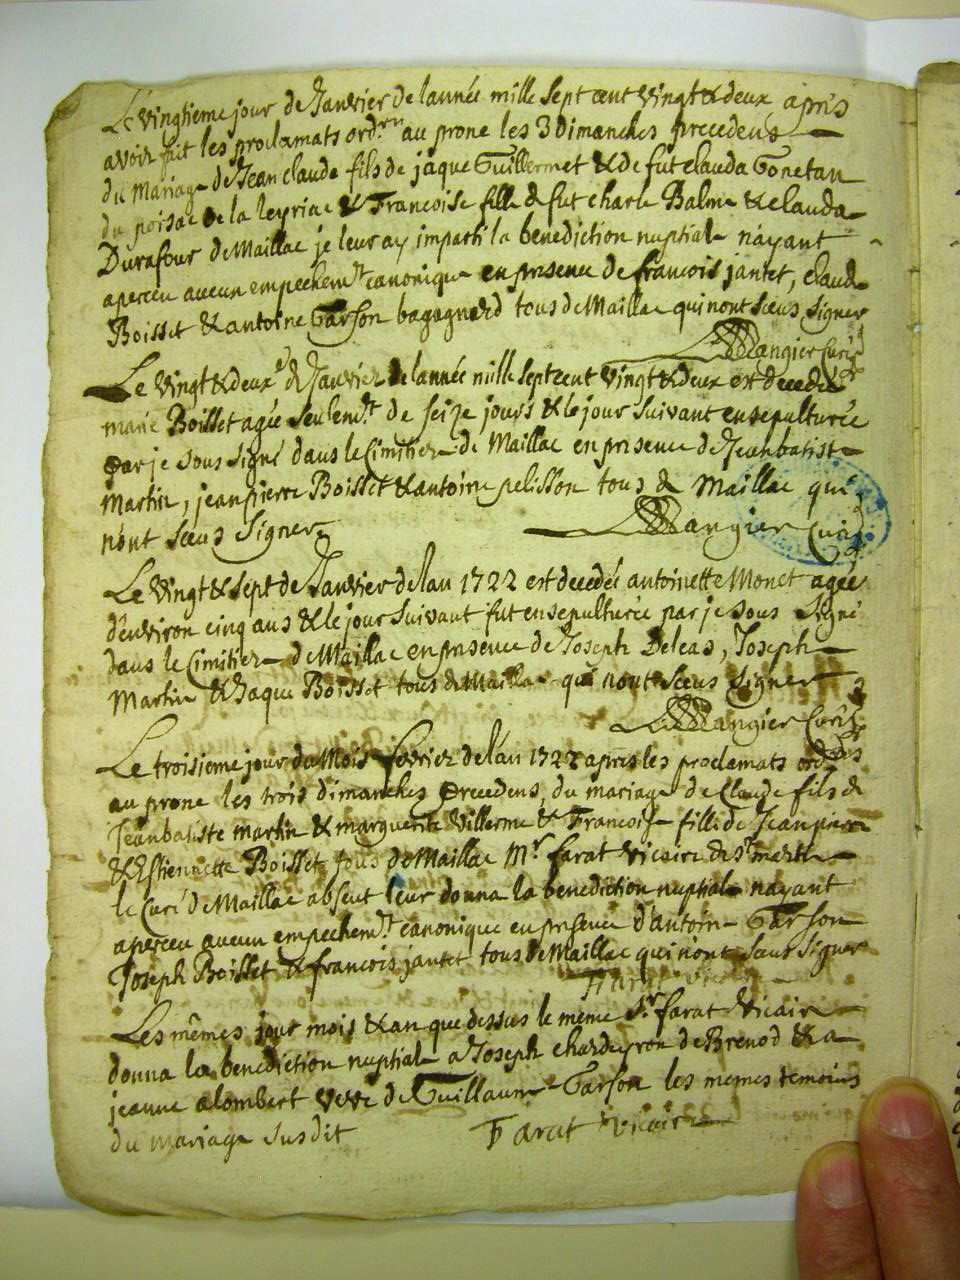 Le vingtieme jour de Janvier de lannée mille sept cent vingt & deux apris
avoir fait les proclamats ord.rn au prone les 3 Dimanches precedens
du Mariage de Jean claude fils de jaque Guillermet & de fut clauda Gonetan
du poisac de la leyriac & Francoise fille de fut charle Balme & clauda
Durafour de Maillac je leur ay imparti la benediction nuptiale n'ayant
aperceu aucun empechem.t canonique en presence de francois jantet, claude
Boisset & antoine Garson bagagnerd tous de Maillac qui nont sceus signer
Mangier Curé
Le vingt & deux.e de Janvier de lannée mille sept cent vingt & deux est decedée
marie Boisset agée seulem.t de seize jours & le jour suivant ensepulturée
par je sous signé dans le Cimitier de Maillac en presence de Jean batiste
Martin, jean pierre Boisset & antoine pelisson tous de Maillac qui
n'ont sceus signer
Mangier Curé
Le vingt & sept de Janvier de lan 1722 est decedée antoinette Monet agée
d'environ cinq ans & le jour suivant fut ensepulturée par je sous signé
dans le Cimitier de Maillac en presence de Joseph Deleas, Joseph
Martin & Jaque Boisset tous de Maillac qui nont sceus signer
Mangier Curé
Le troisieme jour du Mois fevrier de l'an 1722 apres les proclamats ord.
au prone les trois dimanches precedens, du mariage de Claude fils de
Jean batiste martin & marguerite Villerme & Francoise fille de Jean pierre
& Estiennette Boisset tous de Maillac M.r farat vicaire de s.t martin
le Curé de Maillac absent leur donna la benediction nuptiale nayant
aperceu aucun empechem.t canonique en presence d'antoine Garson
Joseph Boisset & francois jantet tous de Maillac qui n'ont sceus signer
Farat vicaire
Les mêmes jour mois & an que dessus le meme S.r farat vicaire
donna la benediction nuptiale a Joseph chardeyron de Brenod & a
jeanne alombert veve de Guillaume Garson les memes temoins
du mariage susdit
Farat vicaire